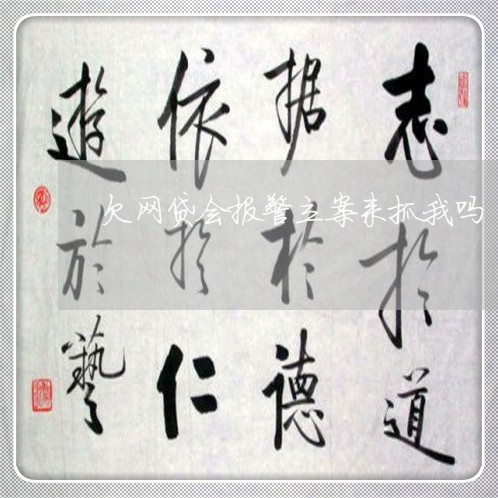 志於道
据於德
依於仁
遊於藝
欠网贷会报警立案来抓我吗